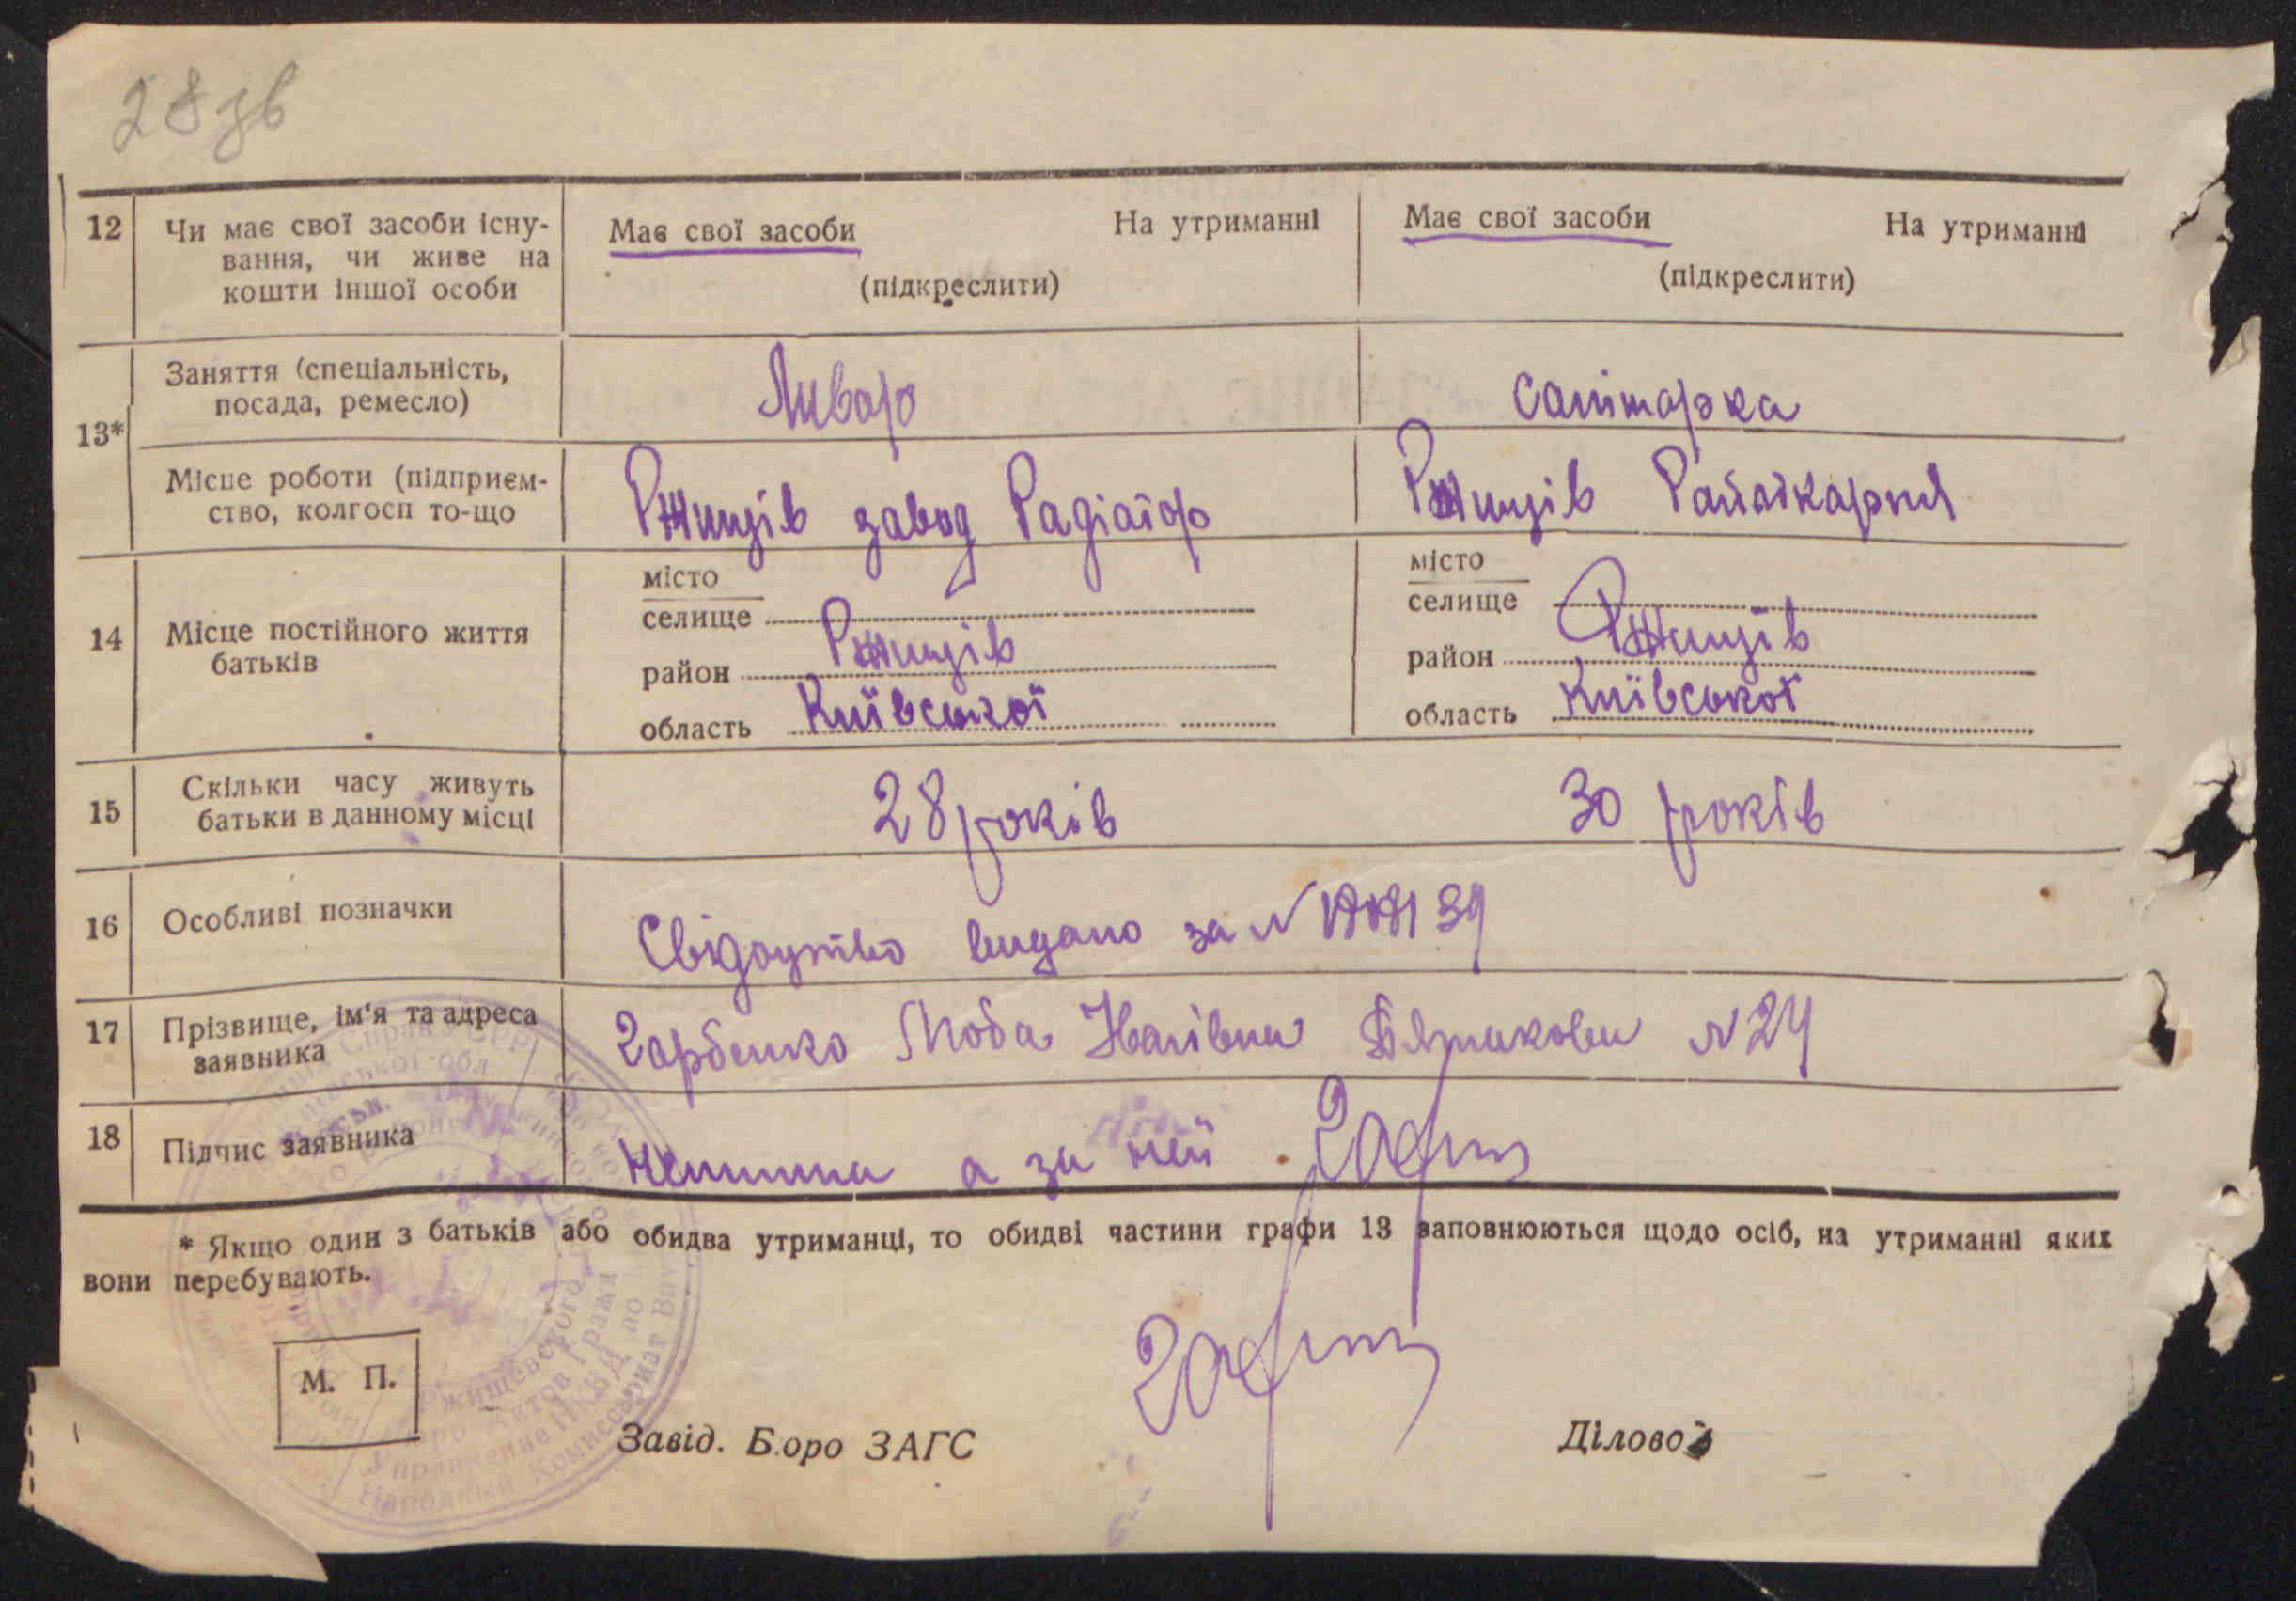 28 зв
12 Чи має свої засоби існу-
вання, чи живе на
кошти іншої особи
Має свої засоби На утриманні
(підкреслити)
Має свої засоби На утриманні
(підкреслити)
13*
Заняття (спеціальність,
посада, ремесло)
Ливар
санітарка
Місце роботи (підприєм-
ство, колгосп то-що
Ржищів завод Радіатор
Ржищів Райлікарня
14 Місце постійного життя
батьків
місто
селище
район Ржищів
область Київської
місто
селище
район Ржищів
область Київської
15 Скільки часу живуть
батьки в данному місці
28 років
30 років
16 Особливі позначки
Свідоцтво видано за №
17 Прізвище, ім'я та адреса
заявника
Гарбенко № 24
18 Підпис заявника
а за неї
* Якщо один з батьків або обидва утриманці, то обидві частини графи 13 заповнюються щодо осіб, на утриманні яких
вони перебувають.
М. П.
Завід. Бюро ЗАГС
Діловод